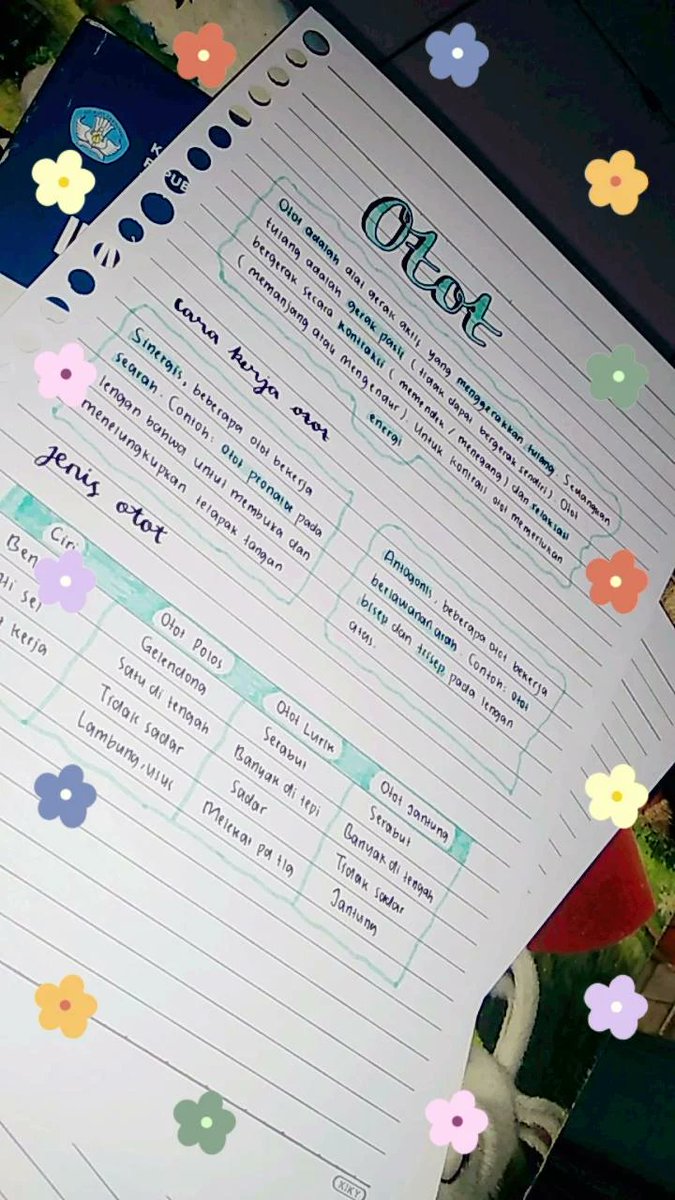 Otot
Otot adalah alat gerak aktif yang menggerakkan tulang. Sedangkan
tulang adalah gerak pasif (tidak dapat bergerak sendiri). Otot
bergerak secara kontraksi (memendek / menegang) dan relaksasi
(memanjang atau mengendur). Untuk kontraksi otot memerlukan
energi
cara kerja otot
Sinergis, beberapa otot bekerja
searah. Contoh: Otot pronator pada
lengan bahwa untuk membuka dan
menelungkupkan telapak tangan
Antagonis, beberapa otot bekerja
berlawanan arah. Contoh: otot
bisep dan trisep pada lengan
atas.
jenis otot
Ciri Otot Polos Otot Lurik Otot Jantung
Ben Gelendong Serabut Serabut
ti sel Satu di tengah Banyak di tepi Banyak di tengah
t kerja Tidak sadar Sadar Tidak sadar
Lambung, usus Melekat pa tlg Jantung
KIKY